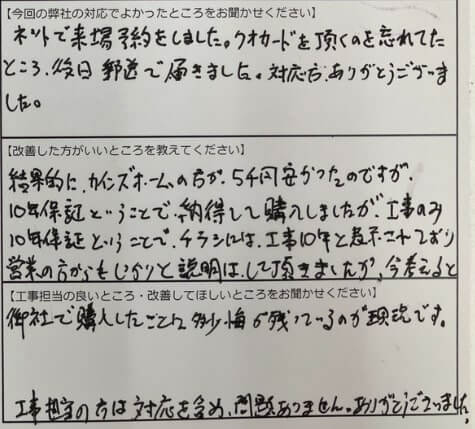 【今回の弊社の対応でよかったところをお聞かせください】
ネットで来場予約をしました。クオカードを頂くのを忘れてた
ところ、後日郵送で届きました。対応方、ありがとうございま
した。
【改善した方がいいところを教えてください】
結果的に、カインズホームの方が、5千円安かったのですが、
10年保証ということで、納得して購入しましたが、工事のみ
10年保証ということで、チラシには、工事10年と表示されており
営業の方からもしっかりと説明は、して頂きましたが、今考えると
【工事担当の良いところ・改善してほしいところをお聞かせください】
御社で購入したことに多少悔が残っているのが現況です。
工事担当の方は対応を含め、問題ありません。ありがとうございました